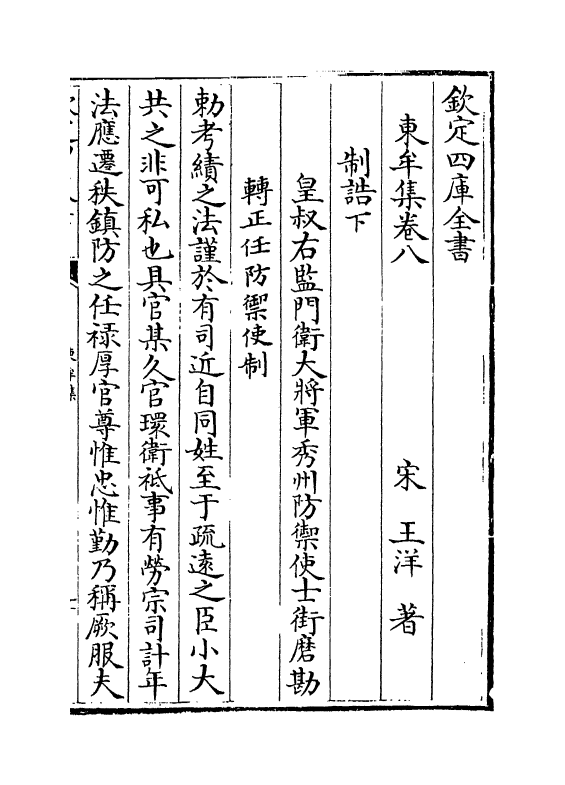 欽定四庫全書
東牟集卷八
宋 王洋 著
制誥下
皇叔右監門衛大將軍秀州防禦使士街磨勘
轉正任防禦使制
勅考績之法謹於有司近自同姓至于疏遠之臣小大
共之非可私也具官某久官環衛祗事有勞宗司計年
法應遷秩鎮防之任禄厚官尊惟忠惟勤乃稱厥服夫